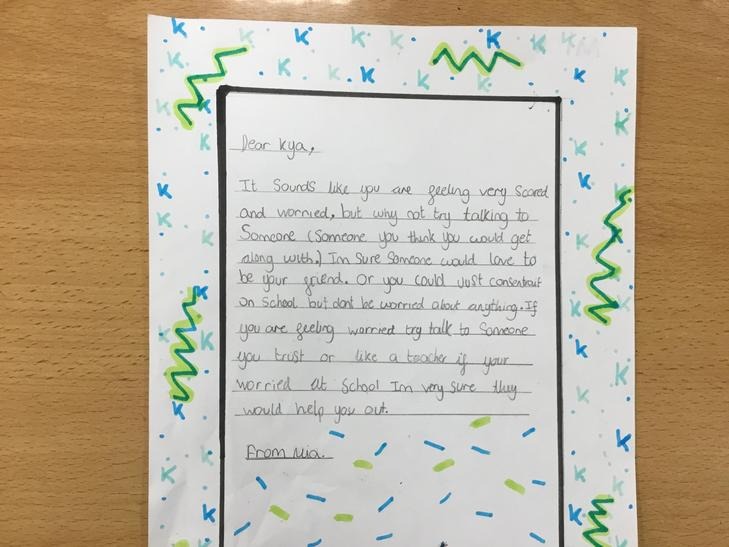 Dear Kya,
It Sounds like you are feeling very Scared
and worried, but why not try talking to
Someone (Someone you think you would get
along with.) Im Sure Someone would love to
be your friend. Or you could Just
on School but dont be worried about anything. If
you are feeling worried try talk to Someone
you trust or like a teacher if your
worried at School Im very sure they
would help you out.
From Nia.